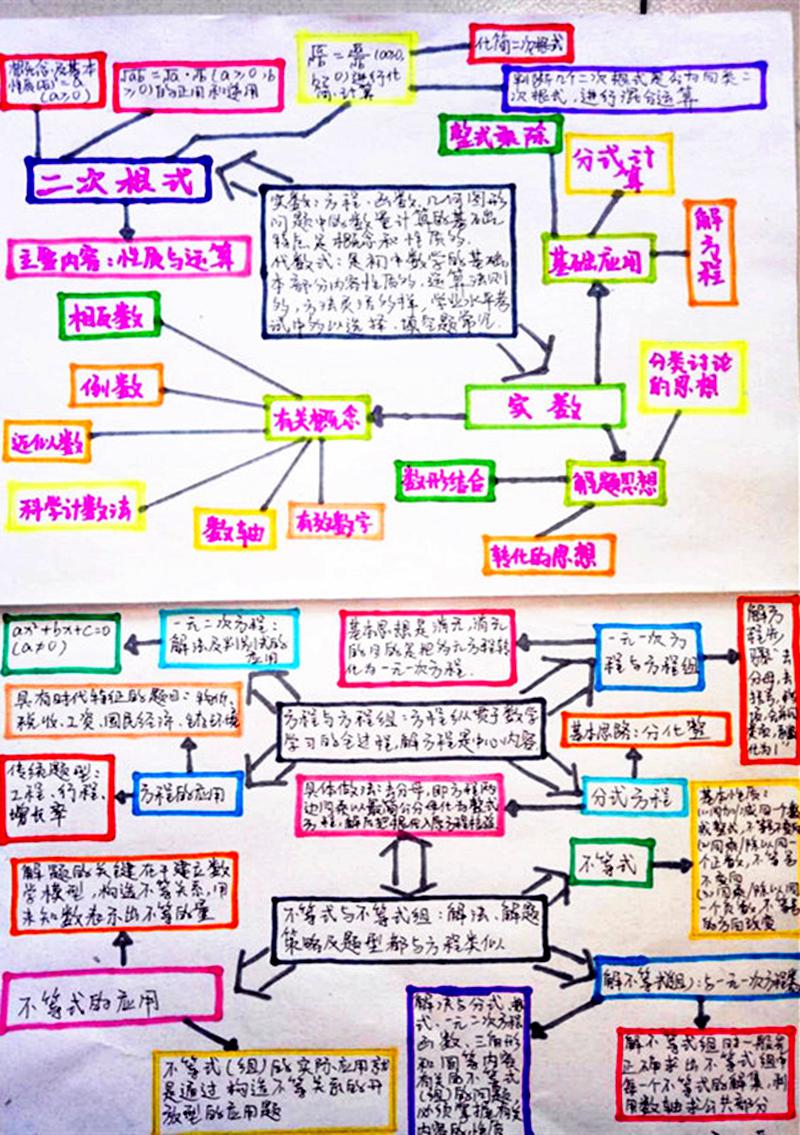 概念及基本
性质
(a≥0)
√ab = √a · √b (a≥0, b
≥0)的应用和运用
进行化
简计算
化简二次根式
判断几个二次根式是否为同类二
次根式,进行混合运算
整式乘除
分式计
算
二次根式
实数:方程、函数、几何图形
问题中的数量计算的基础
特点是概念和性质多.
代数式:是初中数学的基础
本部分内容性质多,运算法则
多,方法灵活多样,学业水平考
试中多以选择、填空题常见.
解方程
基础应用
主要内容:性质与运算
相反数
例数
近似数
科学计数法
数轴
有效数字
有关概念
实数
分类讨论
的思想
数形结合
解题思想
转化的思想
ax²+bx+c=0
(a≠0)
一元二次方程:
解法及判别式的
应用
基本思想是消元,消元
的目的是把多元方程转
化为一元一次方程.
一元一次方
程与方程组
解方
程步
骤"去
分母,去
括号,移
项,合并同
类项,系数
化为1"
具有时代特征的题目:利所、
税收、工资、国民经济、生态环境
方程与方程组:方程纵贯于数学
学习的全过程,解方程是中心内容
基本思路:分化整
传统题型:
工程、行程、
增长率
方程的应用
具体做法:去分母,即方程两
边同乘以最简公分母化为整式
方程,解后把根代入原方程检验
分式方程
基本性质:
(1)同加/减同一个数
或整式,不等号不变向
(2)同乘/除以同一
个正数,不等号
不变向
(3)同乘/除以同
个负数,不等号
的方向改变
不等式
解题的关键在于建立数
学模型,构造不等关系,用
未知数表示出不等的量
不等式与不等式组:解法、解题
策略及题型都与方程类似
不等式的应用
解不等式(组):与一元一次方程类
不等式(组)的实际应用就
是通过构造不等关系的开
放型的应用题
解法与分式、根
式、一元二次方程
函数、三角形
和圆等内容
有关的不等式
(组)的问题,
必须掌握有关
内容的性质
解不等式组时一般先
正确求出不等式组中
每一个不等式的解集,利
用数轴求公共部分